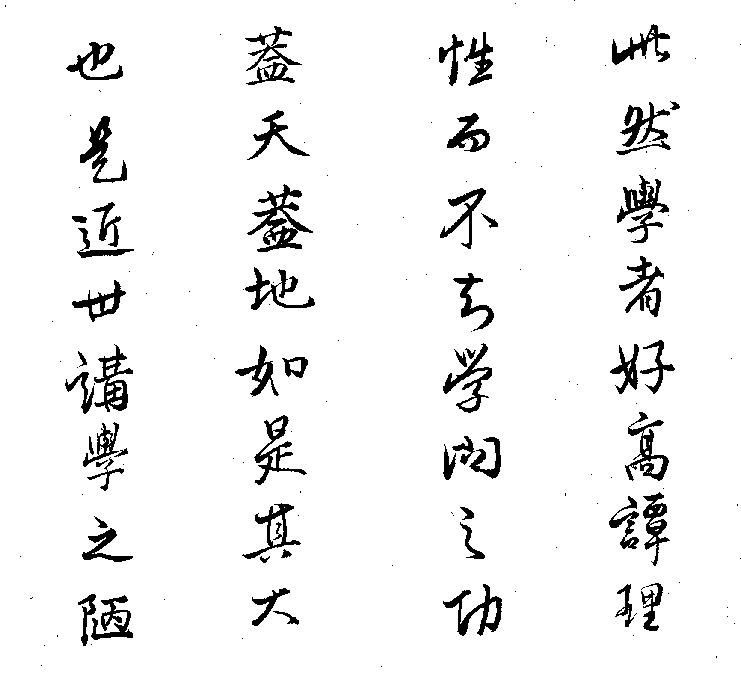 此然學者好高譚理
性而不知学問之功
蓋天蓋地如是其大
也是近世講學之陋